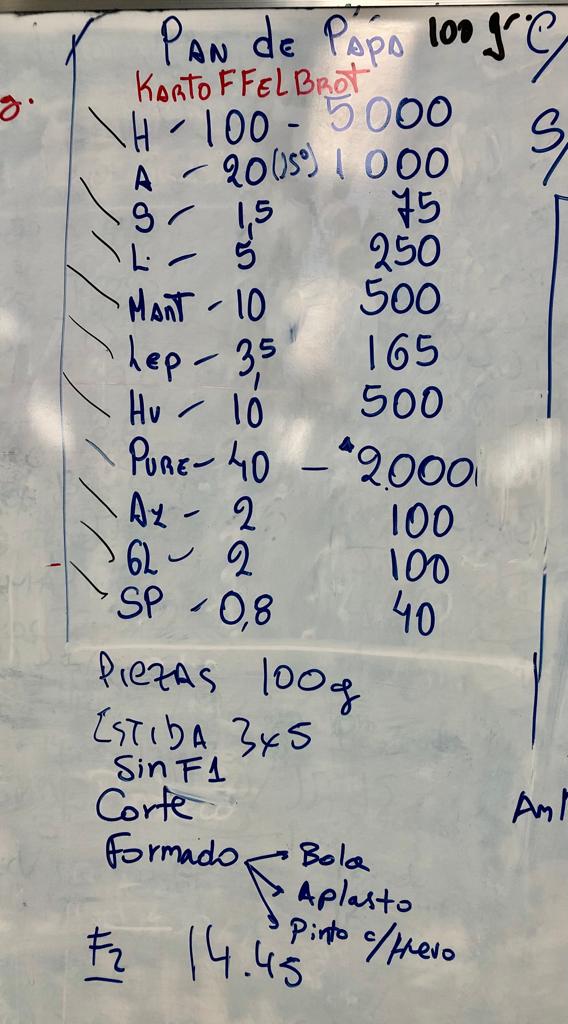 PAN de PAPA 100 gr
KARTOFFELBROT
H - 100 - 5000
A - 20 (15°) 1000
S - 1,5 75
L - 5 250
MANT - 10 500
Lep - 3,5 165
Hu - 10 500
PURE - 40 - 2000
Az - 2 100
GL - 2 100
SP - 0,8 40
PIEZAS 100g
ESTIBA 3x5
Sin F1
Corte
Formado → Bola
→ Aplasto
→ Pinto c/Huevo
F2 14.45
g.
C/
S/